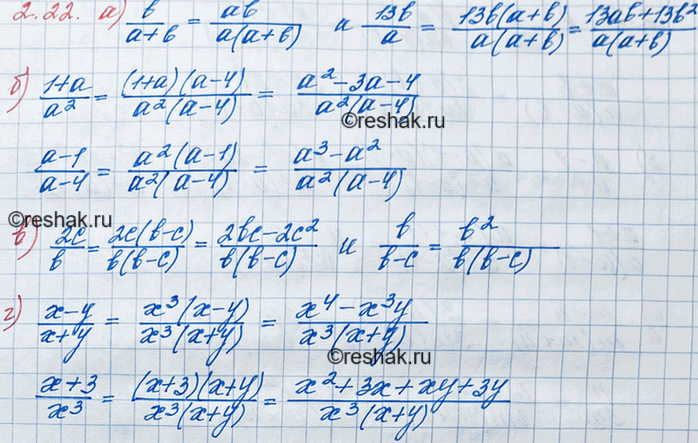 2.22. а) b/(a+b) = ab/(a(a+b)) и 13b/a = 13b(a+b)/(a(a+b)) = (13ab+13b²)/(a(a+b))
б) (1+a)/a² = (1+a)(a-4)/(a²(a-4)) = (a²-3a-4)/(a²(a-4))
©reshak.ru
(a-1)/(a-4) = a²(a-1)/(a²(a-4)) = (a³-a²)/(a²(a-4))
©reshak.ru
в) 2c/b = 2c(b-c)/(b(b-c)) = (2bc-2c²)/(b(b-c)) и b/(b-c) = b²/(b(b-c))
г) (x-y)/(x+y) = x³(x-y)/(x³(x+y)) = (x⁴-x³y)/(x³(x+y))
©reshak.ru
(x+3)/x³ = (x+3)(x+y)/(x³(x+y)) = (x²+3x+xy+3y)/(x³(x+y))